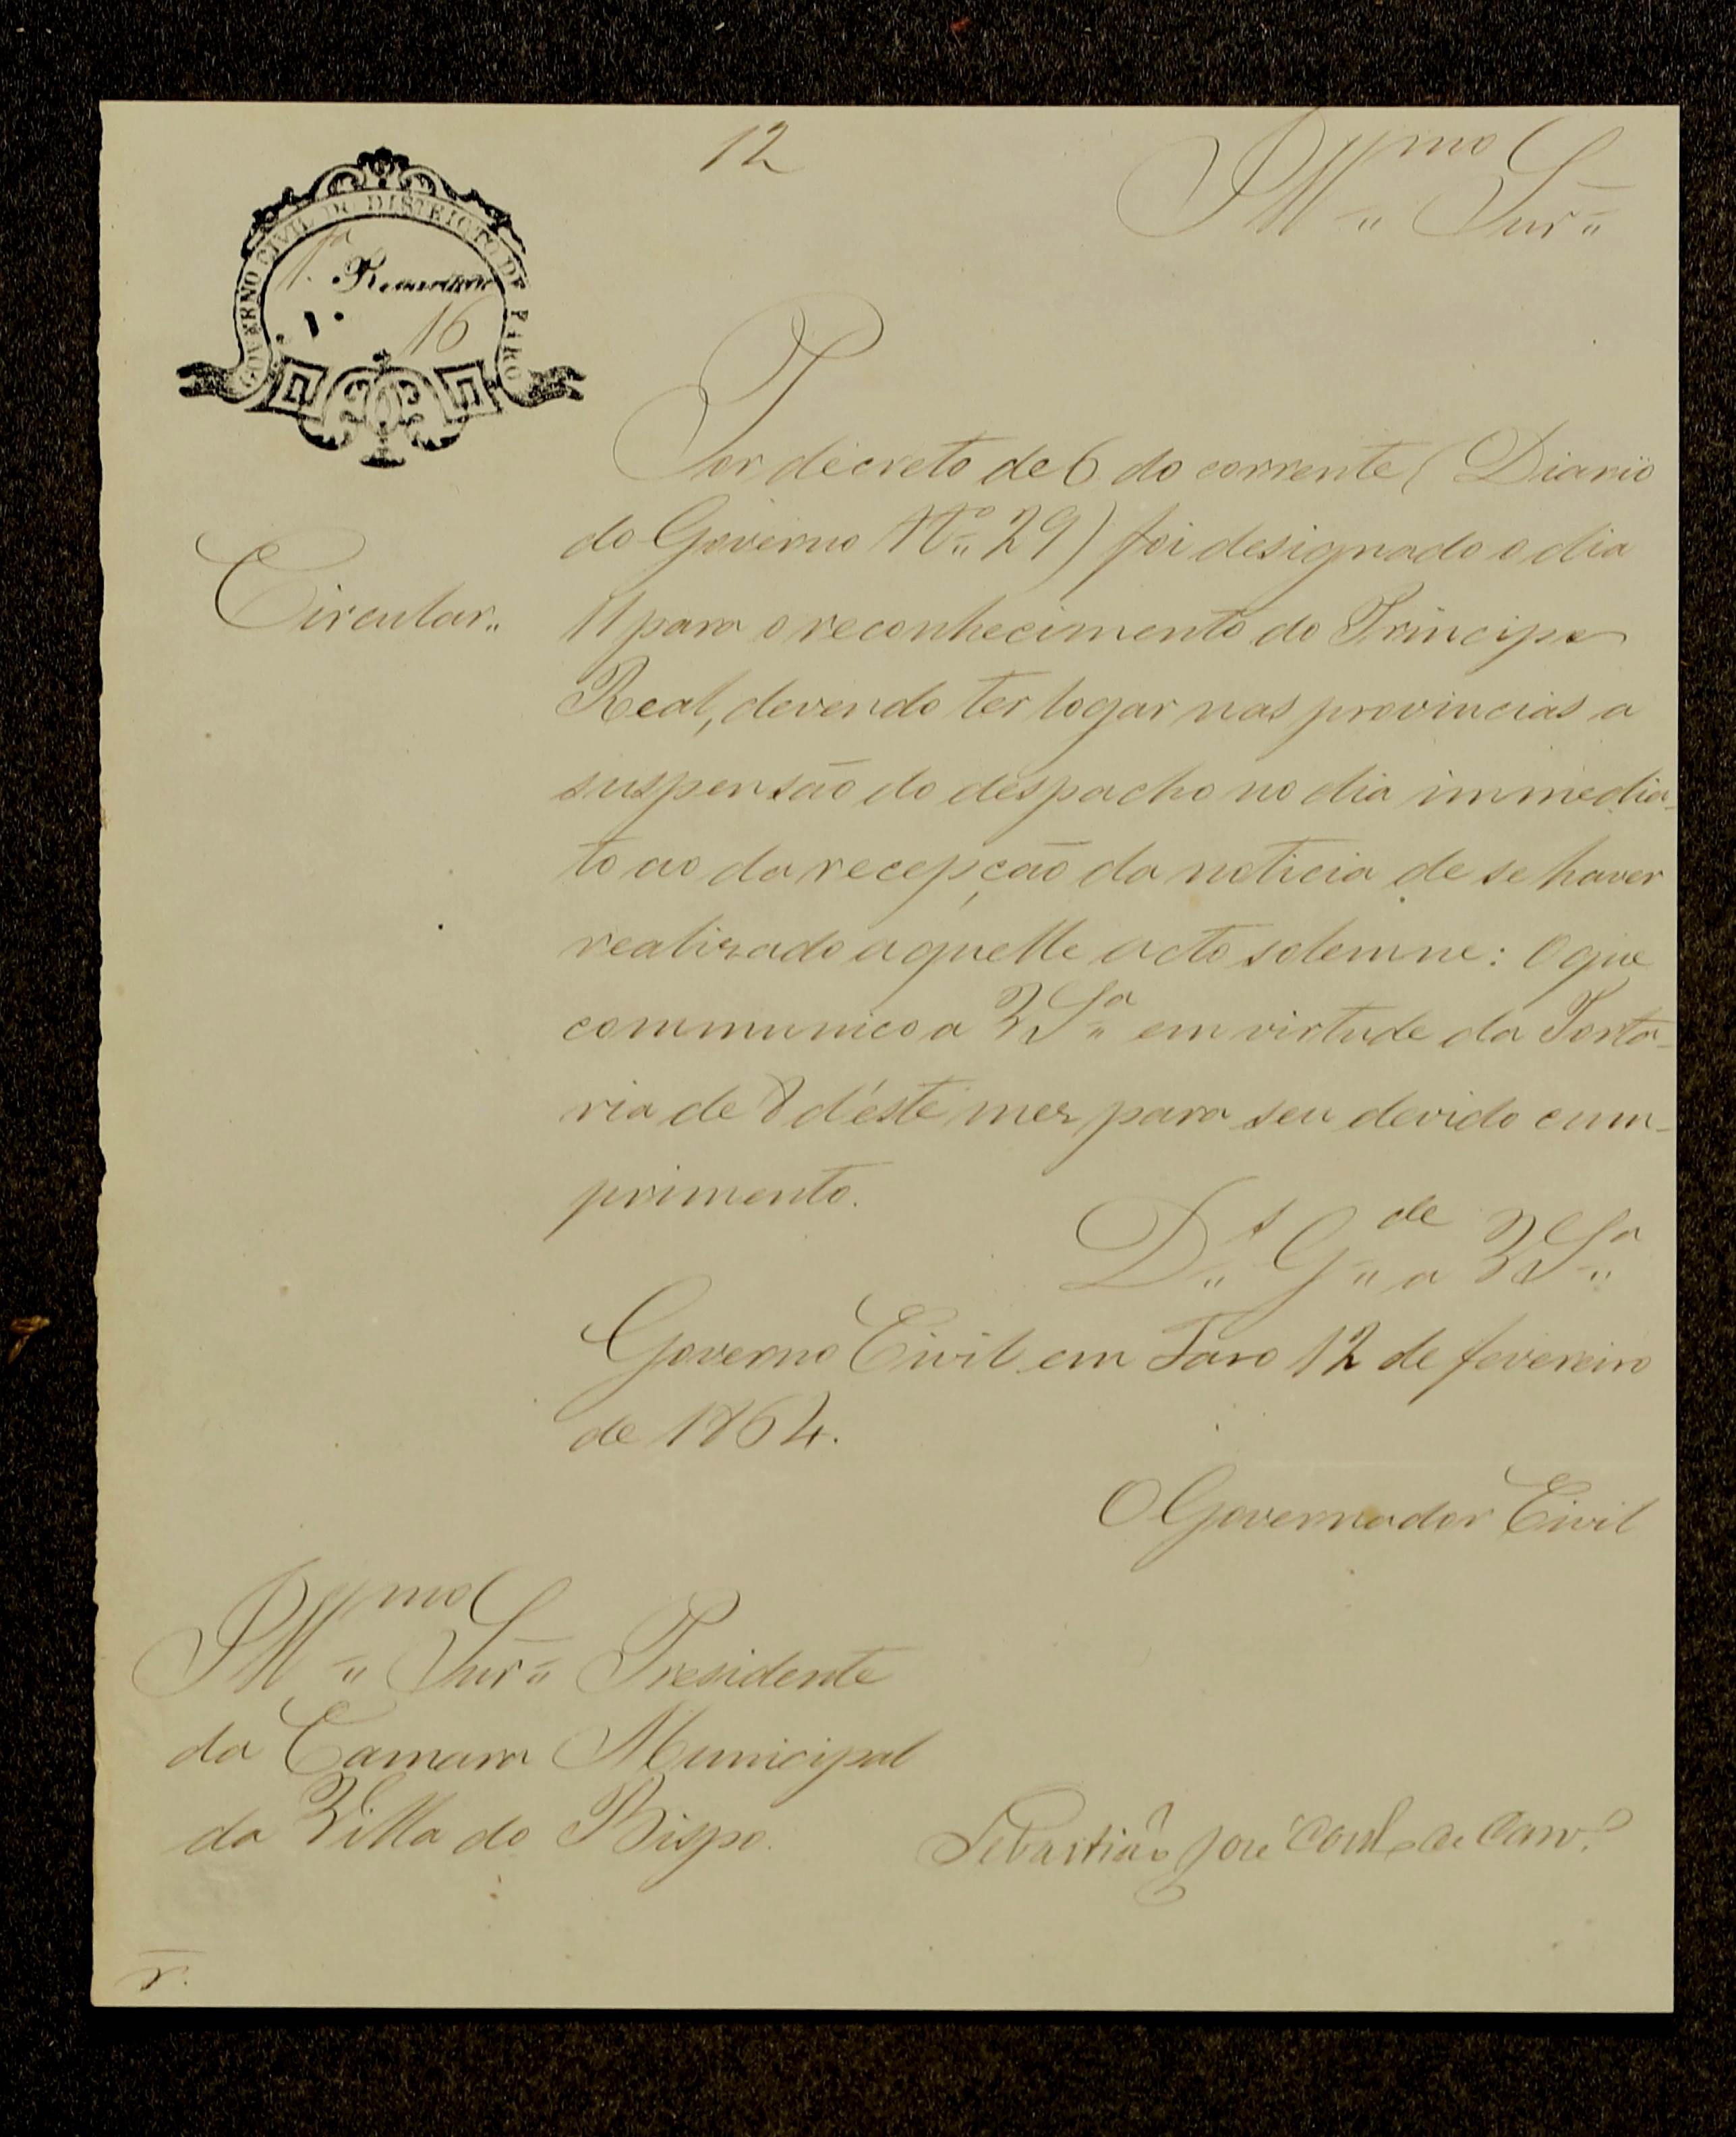 12
Ill.mo Snr.
GOVERNO CIVIL DO DISTRICTO DE FARO
1.a Repartição
N.
16
Por decreto de 6 do corrente (Diario
do Governo N.o 29) foi designado o dia
Circular.
11 para o reconhecimento do Principe
Real, devendo ter logar nas provincias a
suspensão do despacho no dia immedia-
to ao da recepção da noticia de se haver
realizado aquelle acto solemne: O que
communico a V S.a em virtude da Porta-
ria de 8 d'éste mez para seu devido cum-
primento.
D.s G.de a V S.a
Governo Civil em Faro 12 de fevereiro
de 1864.
O Governador Civil
Ill.mo Snr. Presidente
da Camara Municipal
da Villa do Bispo.
Sebastião José de Carv.o